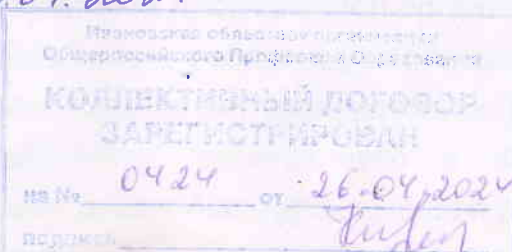 Ивановская областная организация
Общероссийского Профсоюза Образования
КОЛЛЕКТИВНЫЙ ДОГОВОР
ЗАРЕГИСТРИРОВАН
на № 0424 от 26.04.2024
подпись